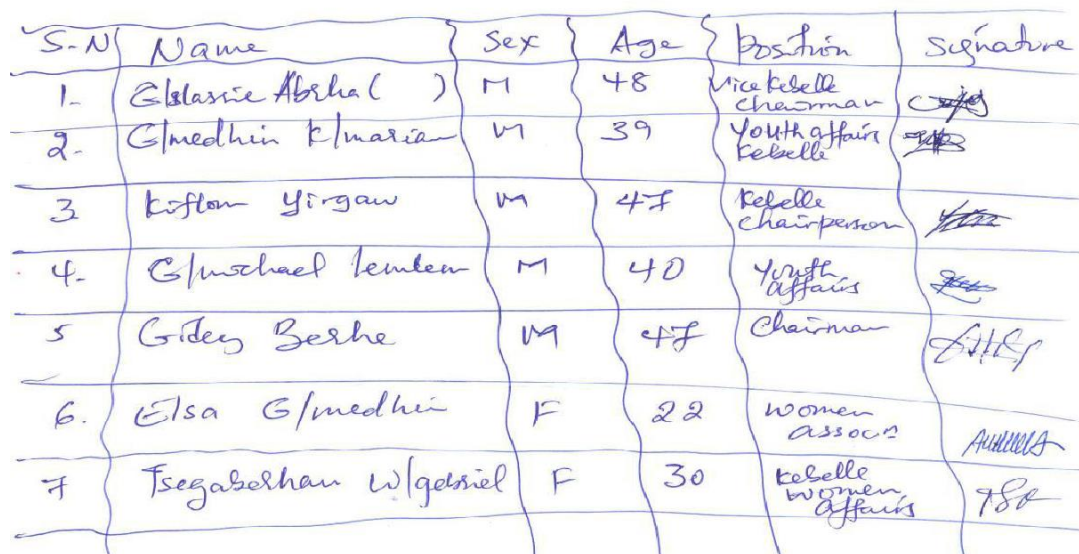 S-N Name Sex Age Position Signature
1- G/slassie Abrha ( ) M 48 Vice Kebelle chairman
2- G/medhin k/mariam M 39 Youth affairs Kebelle
3 Kiflom Yirgaw M 47 Kebelle chairperson
4- G/michael Lemlem M 40 Youth affairs
5 Gidey Berhe M 47 Chairman
6. Elsa G/medhin F 22 women
7 Tsegaberhan W/gebriel F 30 Kebelle women affairs